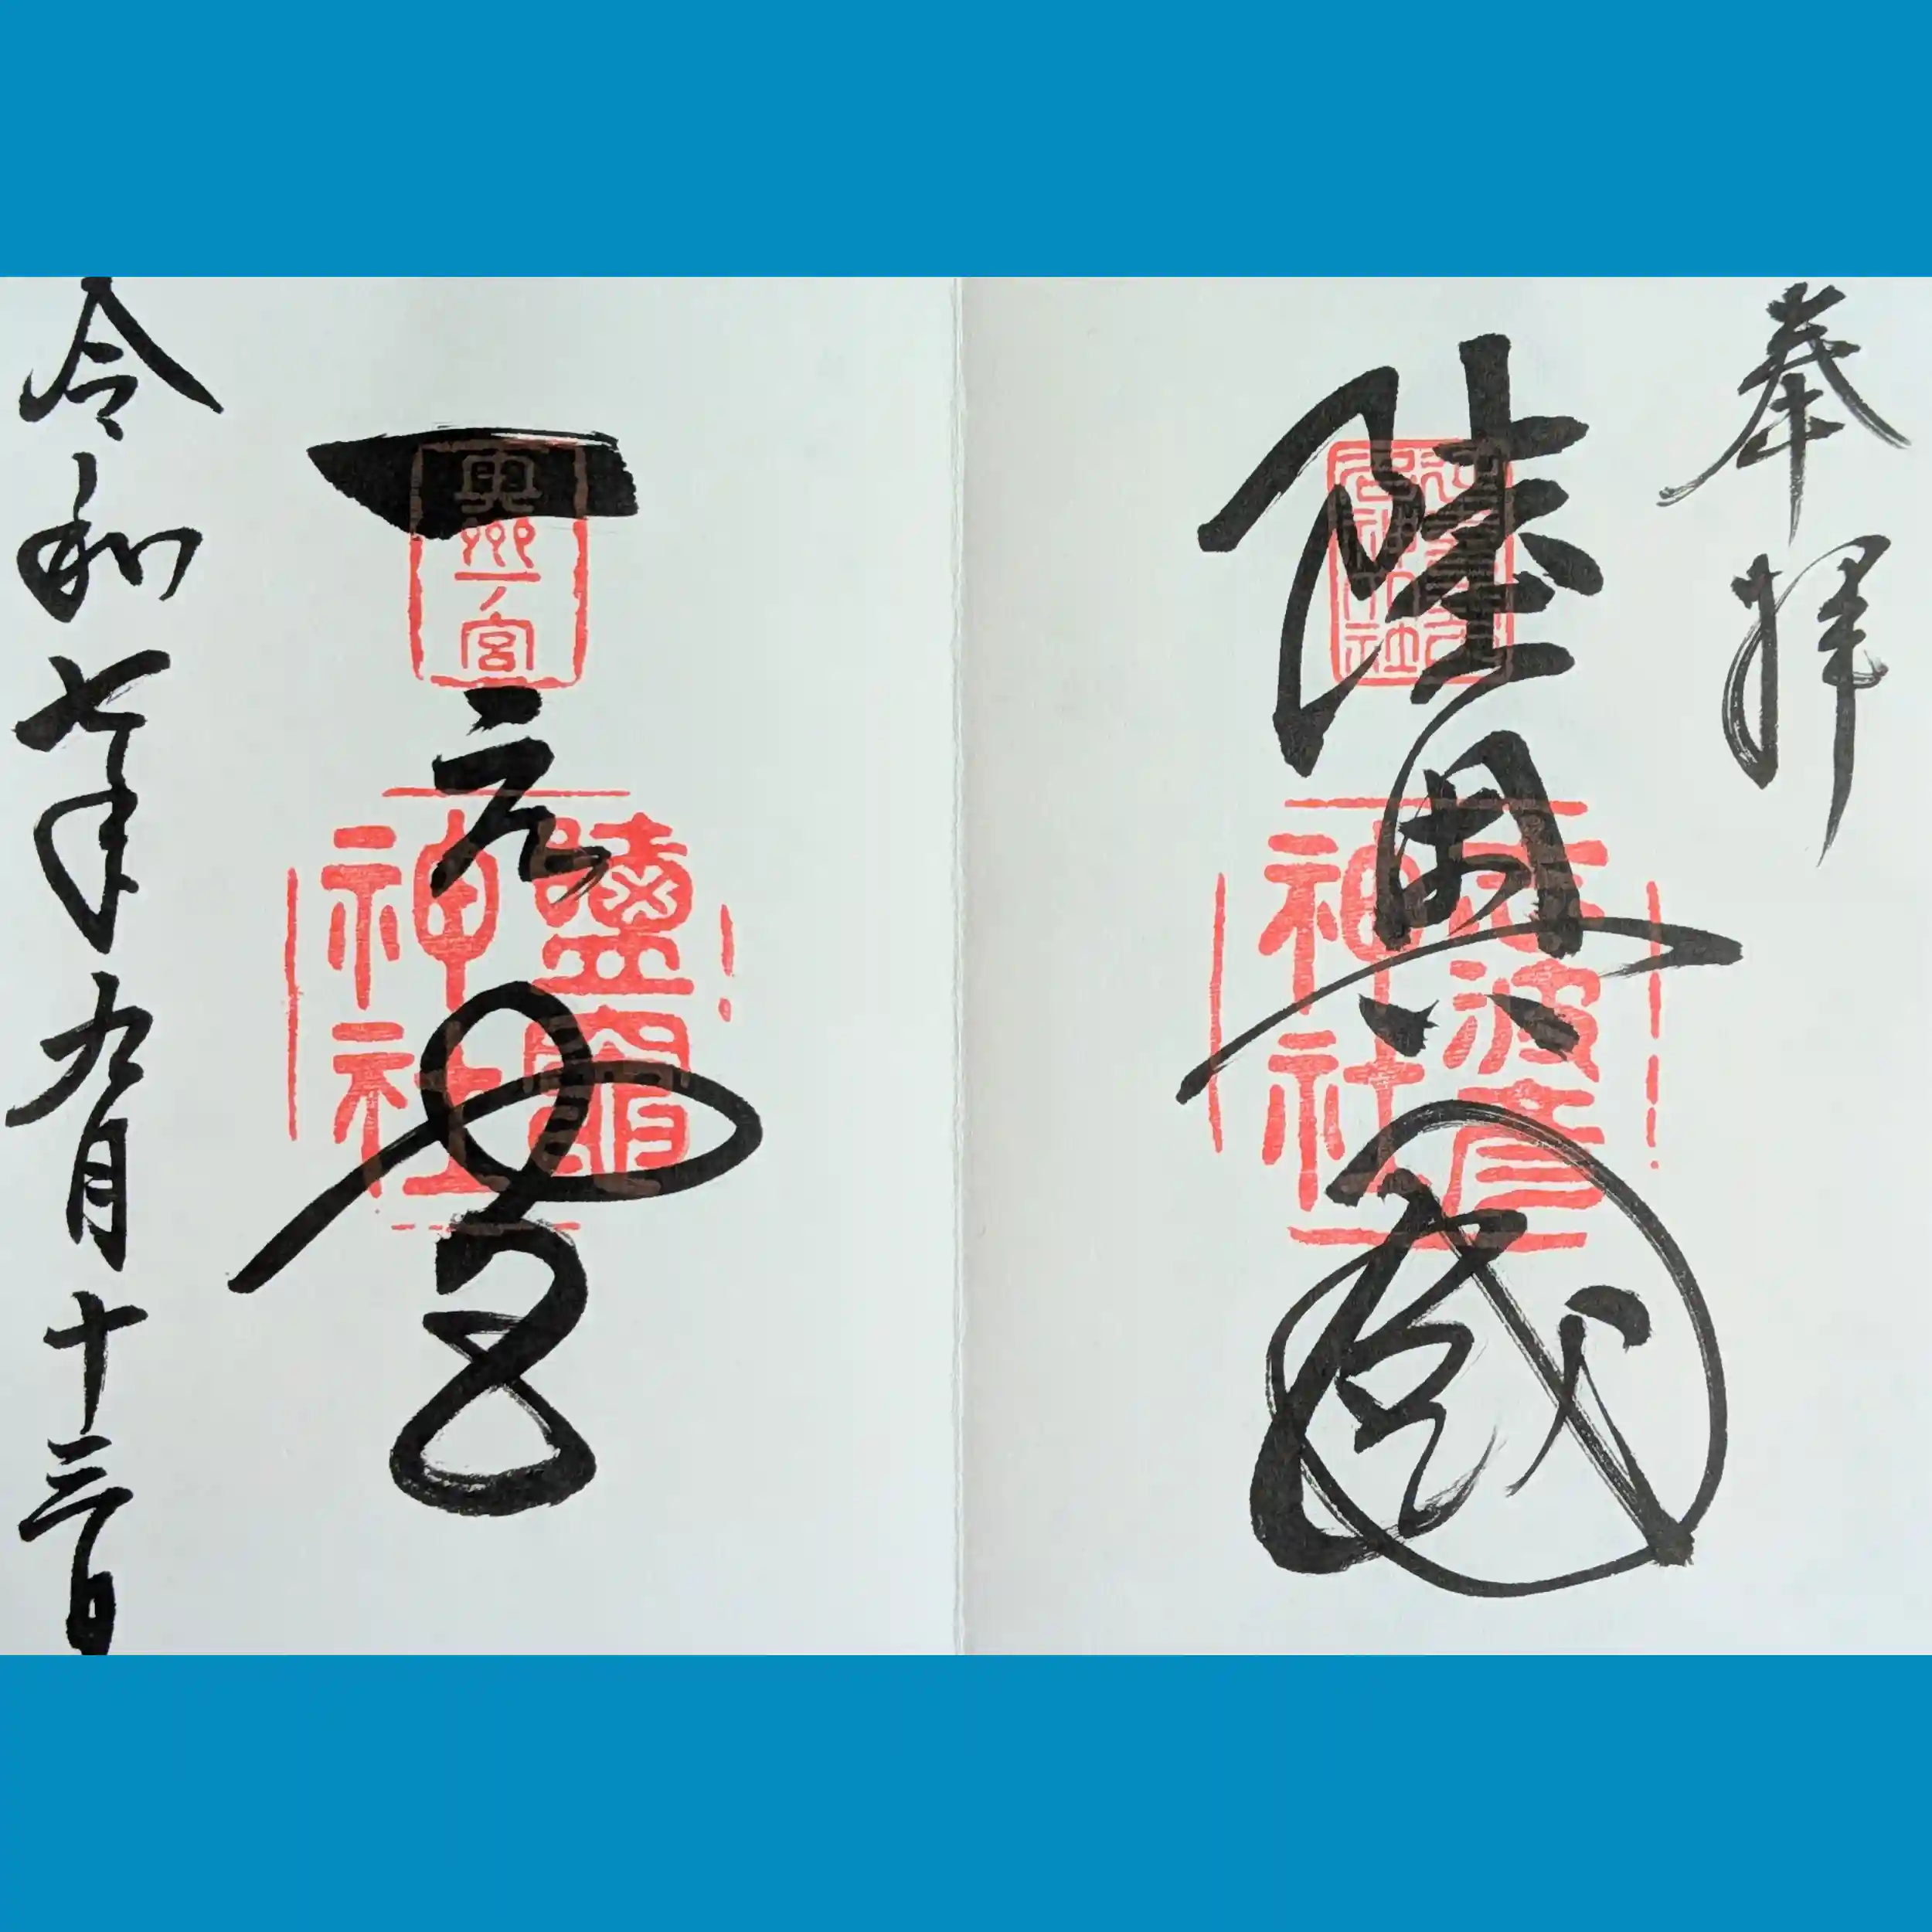 奉拝
陸奥國
名神大社
志波彦神社
一之宮
奥州一ノ宮
鹽竈神社
令和七年九月十三日